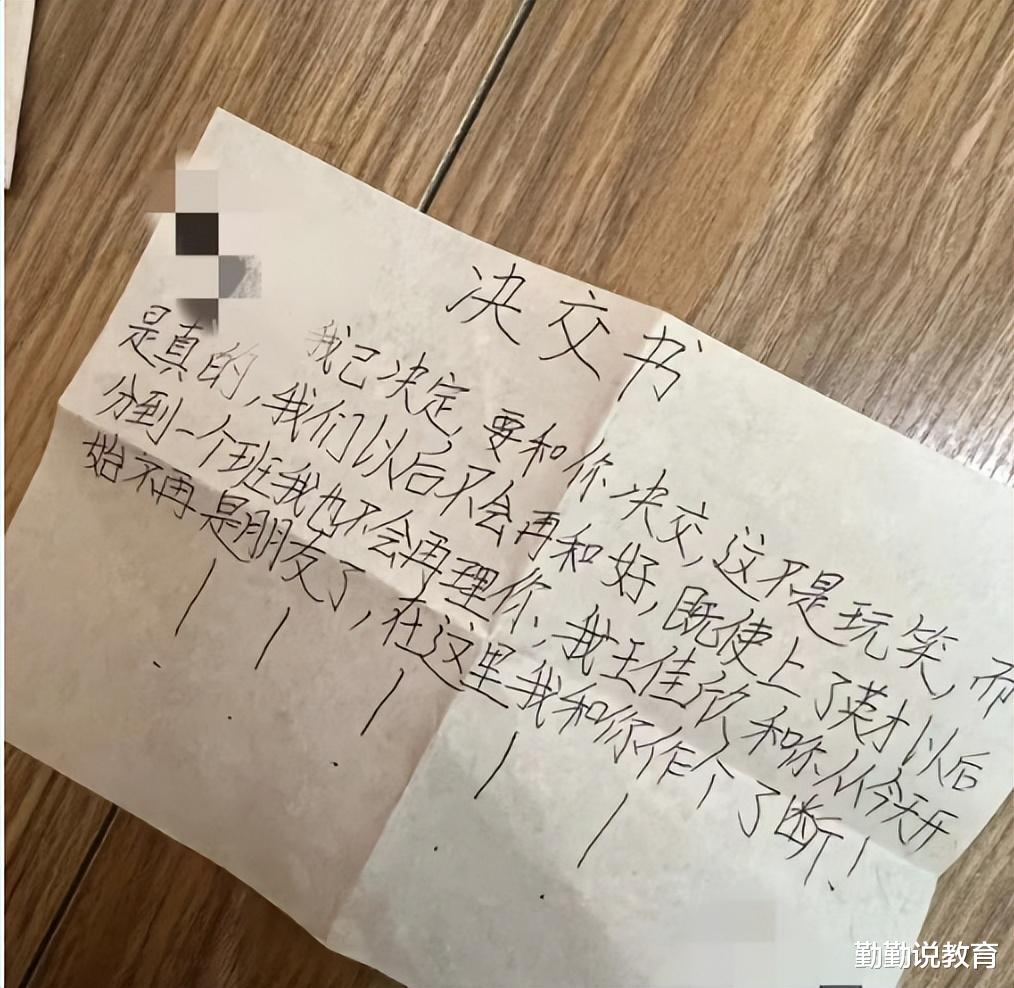 决交书
我己决定,要和你决交,这不是玩笑,而
是真的,我们以后不会再和好,既使上了英才以后
分到一个班我也不会再理你,我王佳欣和你从今天开
始不再是朋友了,在这里我和你作个了断!
!!!!!
勤勤说教育